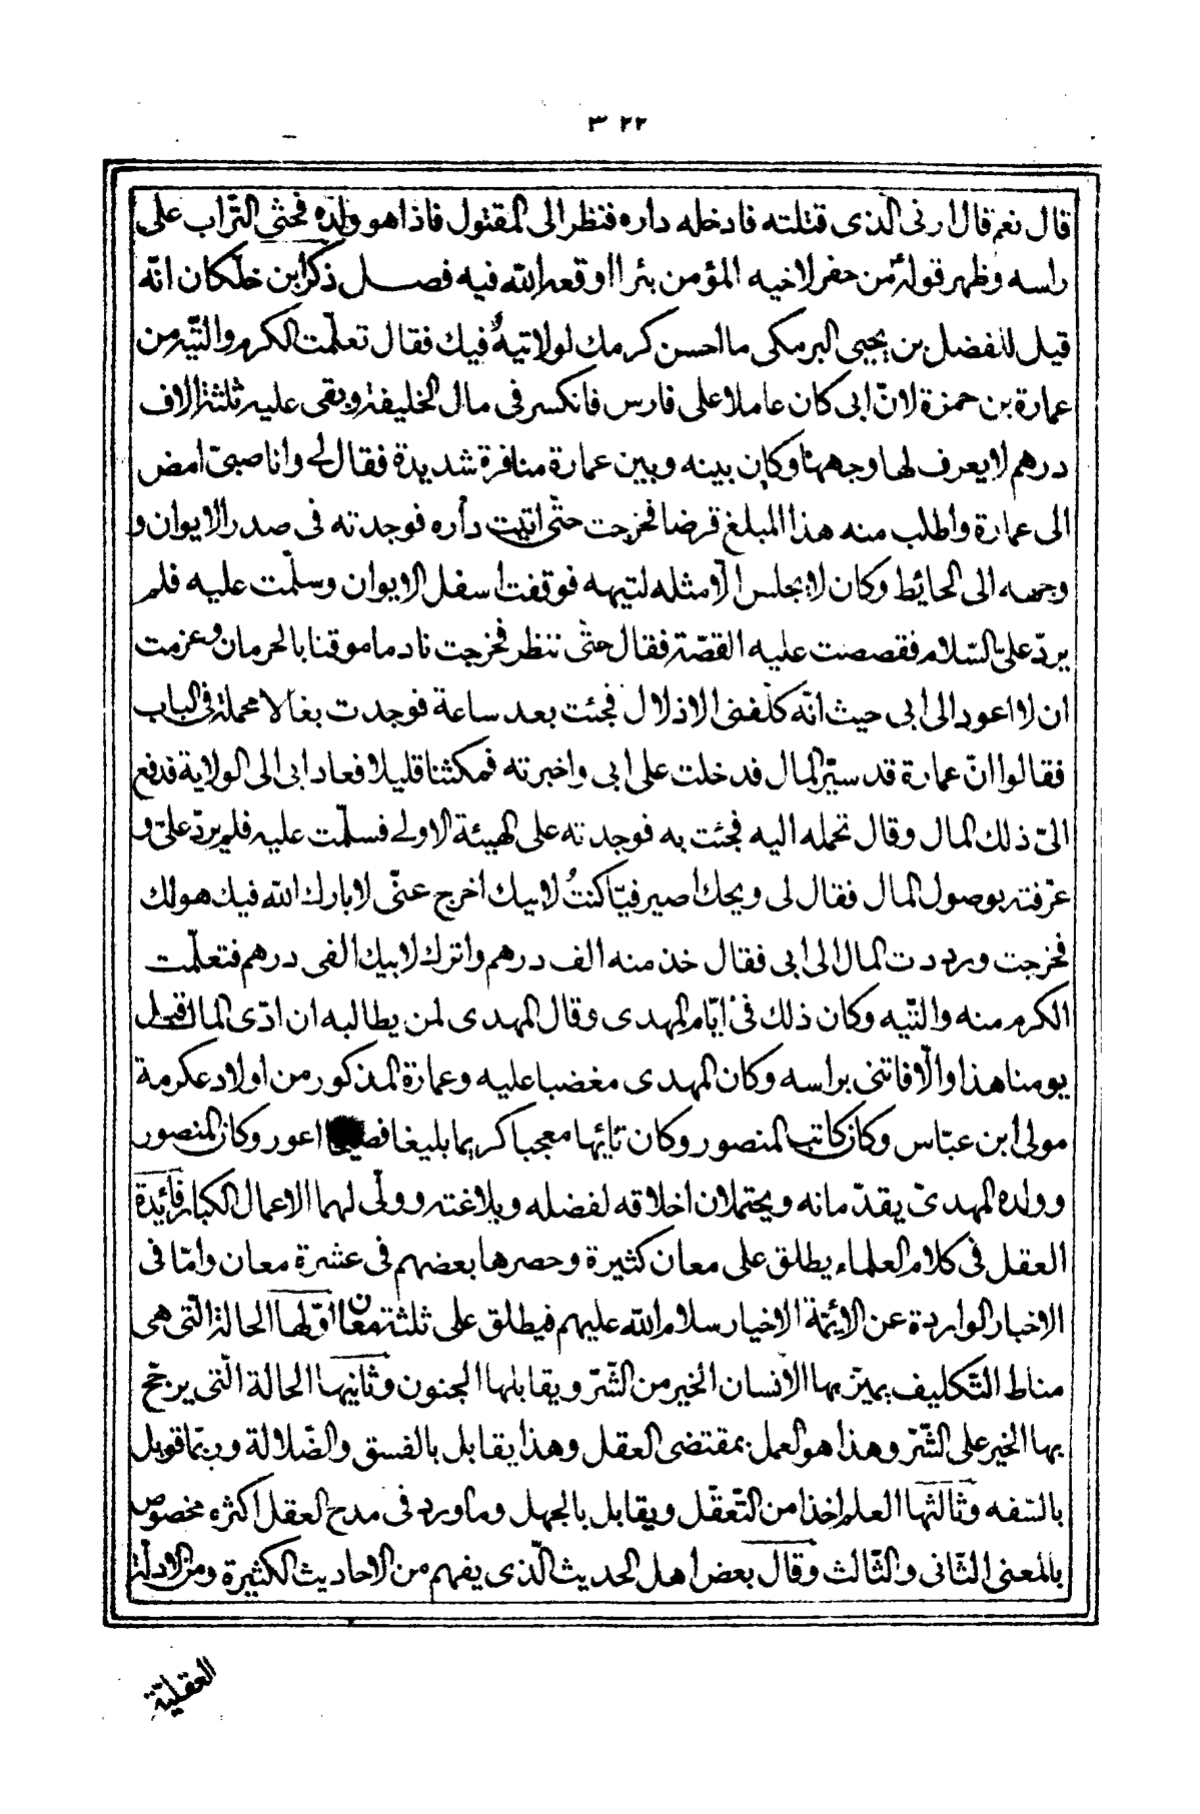 ٣٢٢
قال نعم قال ارنى الذى قتلته فادخله داره فنظر الى المقتول فاذا هو ولده فحثى التّراب على
راسه وظهر قوله من حفر لاخيه المؤمن بئرا اوقعه الله فيه فصل ذكر ابن خلّكان انّه
قيل للفضل بن يحيى البرمكى ما احسن كرمك لولا تيهٌ فيك فقال تعلّمت الكرم والتّيه من
عمارة بن حمزة لانّ ابى كان عاملا على فارس فانكسر فى مال الخليفة وبقى عليه ثلثة الاف
درهم لا يعرف لها وجهها وكان بينه وبين عمارة منافرة شديدة فقال لى وانا صبىّ امض
الى عمارة واطلب منه هذا المبلغ قرضا فخرجت حتّى اتيت داره فوجدته فى صدر الايوان و
وجهه الى الحائط وكان لا يجلس الّا مثله لتيهه فوقفت اسفل الايوان وسلّمت عليه فلم
يردّ علىّ السّلام فقصصت عليه القصّة فقال حتّى ننظر فخرجت نادما موقنا بالحرمان وعزمت
ان لا اعود الى ابى حيث انّه كلّفنى الاذلال فجئت بعد ساعة فوجدت بغالا محملة فى الباب
فقالوا انّ عمارة قد سيّر المال فدخلت على ابى واخبرته فمكثنا قليلا فعاد ابى الى الولاية فدفع
الىّ ذلك المال وقال تحمله اليه فجئت به فوجدته على الهيئة الاولى فسلّمت عليه فلم يردّ علىّ و
عرّفته بوصول المال فقال لى ويحك اصيرفيّا كنتُ لابيك اخرج عنّى لا بارك الله فيك هو لك
فخرجت ورددت المال الى ابى فقال خذ منه الف درهم واترك لابيك الفى درهم فتعلّمت
الكرم منه والتّيه وكان ذلك فى ايّام المهدى وقال المهدى لمن يطالبه ان ادّى المال قبل
يومنا هذا والّا فاتنى براسه وكان المهدى مغضبا عليه وعمارة المذكور من اولاد عكرمة
مولى ابن عبّاس وكان كاتب المنصور وكان تايها معجبا كريما بليغا اعور وكان المنصور
وولده المهدىّ يقدّمانه ويحتملان اخلاقه لفضله وبلاغته وولّى لهما الاعمال الكبار فائدة
العقل فى كلام العلماء يطلق على معان كثيرة وحصرها بعضهم فى عشرة معان وامّا فى
الاخبار الواردة عن الائمّة الاخيار سلام الله عليهم فيطلق على ثلثة معان اوّلها الحالة الّتى هى
مناط التّكليف يميّز بها الانسان الخير من الشّرّ ويقابلها الجنون وثانيها الحالة الّتى يرجّح
بها الخير على الشّرّ وهذا هو العمل بمقتضى العقل وهذا يقابل بالفسق والضّلالة وربّما قوبل
بالسّفه وثالثها العلم اخذا من التّعقّل ويقابل بالجهل وما ورد فى مدح العقل اكثره مخصوص
بالمعنى الثّانى والثّالث وقال بعض اهل الحديث الّذى يفهم من الاحاديث الكثيرة ومن الادلّة
العقليّة